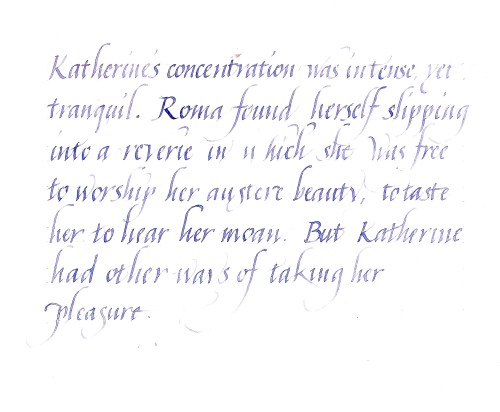 Katherine's concentration was intense, yet
tranquil. Roma found herself slipping
into a reverie in which she was free
to worship her austere beauty, to taste
her to hear her moan. But Katherine
had other ways of taking her
pleasure.